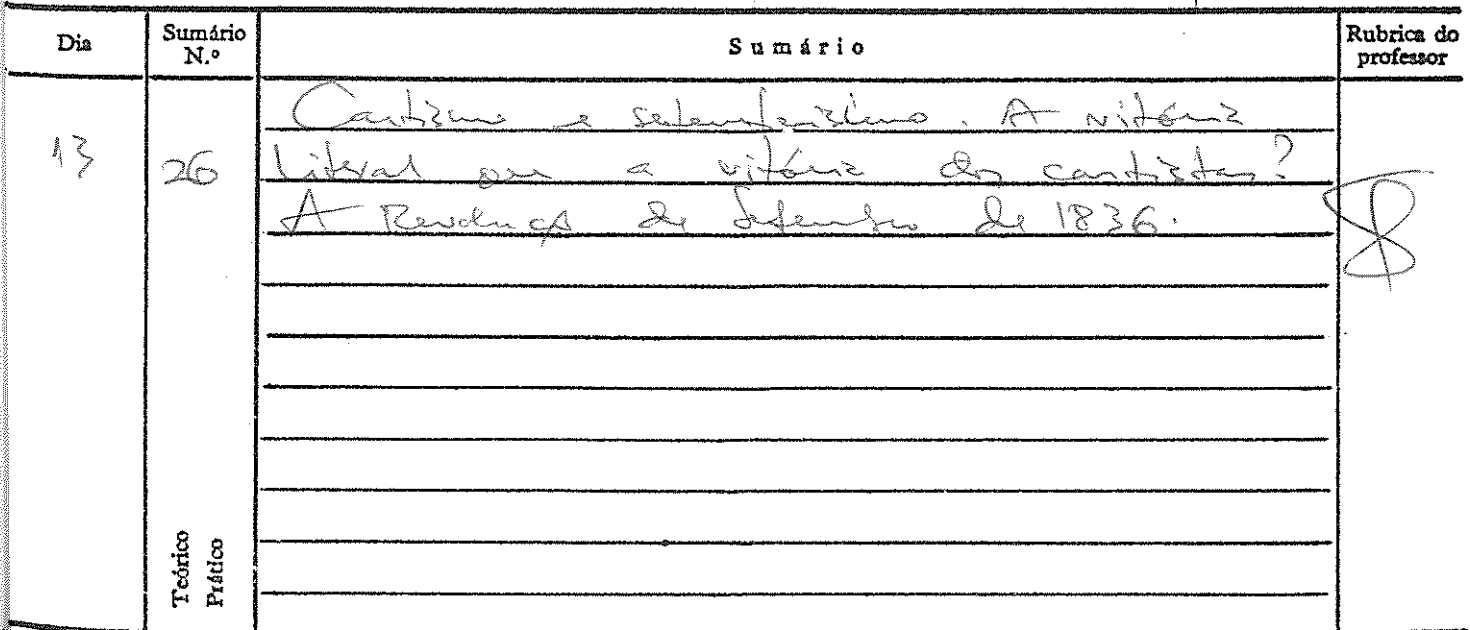 Dia Sumário N.º Sumário Rubrica do professor
Cartismo e setembrismo. A vitória
13 26 liberal ou a vitória dos cartistas?
A Revolução de Setembro de 1836.
Teórico
Prático